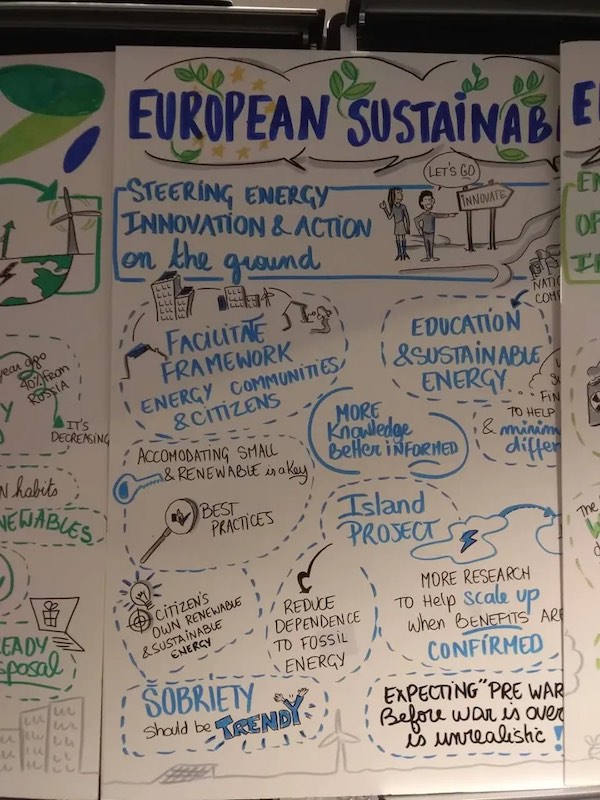 EUROPEAN SUSTAINAB
STEERING ENERGY
INNOVATION & ACTION
on the ground
LET'S GO
INNOVATE
NATIO
COM
FACILITAE
FRAMEWORK
ENERGY COMMUNITIES
& CITIZENS
EDUCATION
& SUSTAINABLE
ENERGY
MORE
Knowledge
Better INFORMED
FIN
TO HELP
& minim
differ
ACCOMODATING SMALL
& RENEWABLE is a Key
BEST
PRACTICES
Island
PROJECT
CITIZEN'S
OWN RENEWABLE
& SUSTAINABLE
ENERGY
REDUCE
DEPENDENCE
TO FOSSIL
ENERGY
MORE RESEARCH
TO Help scale up
when BENEFITS ARE
CONFIRMED
SOBRIETY
should be TRENDY
EXPECTING "PRE WAR
Before war is over
is unrealistic!
year ago
40% from
RUSSIA
IT'S
DECREASING
N habits
NEWABLES
EADY
sposal
E
EN
OP
The